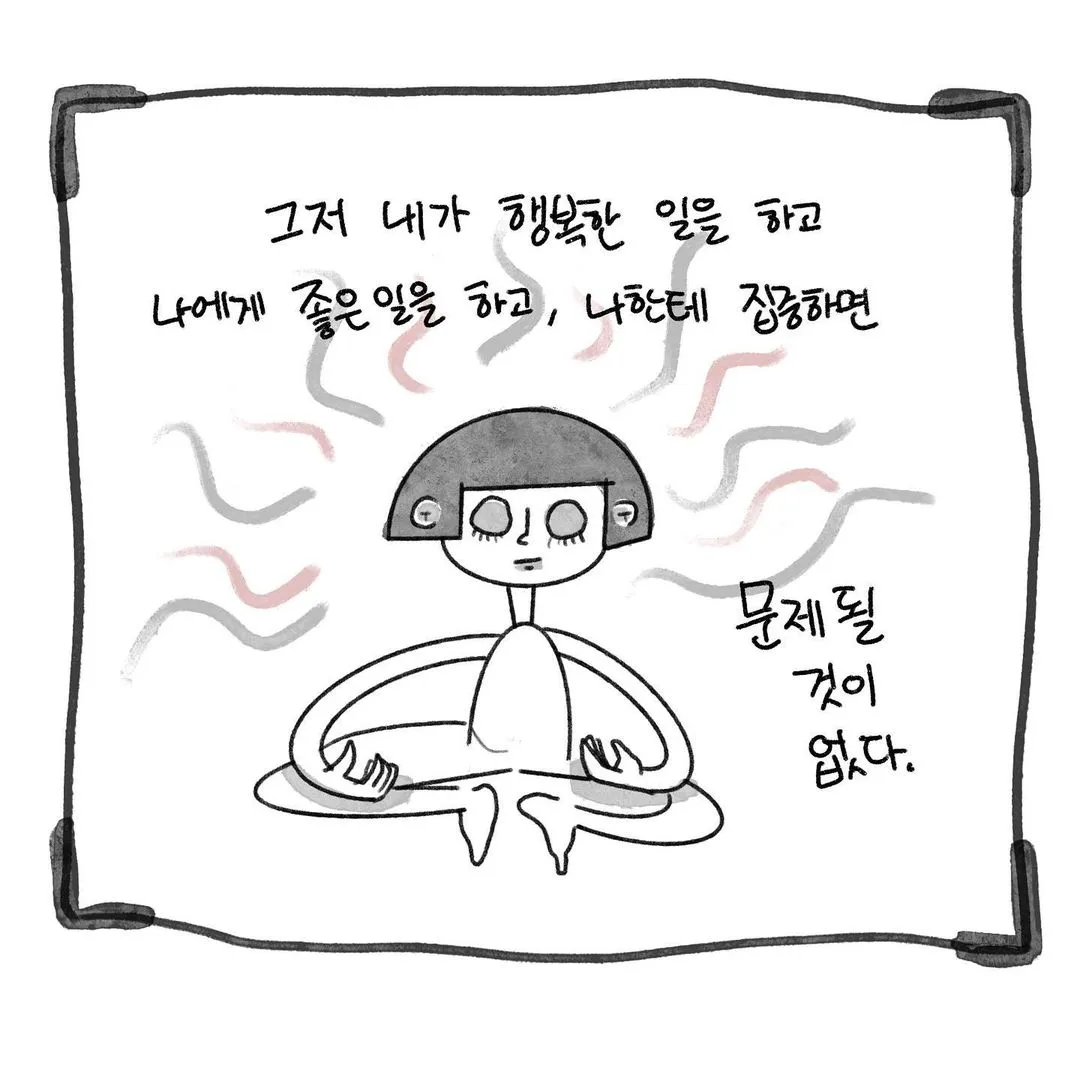 그저 내가 행복한 일을 하고
나에게 좋은 일을 하고, 나한테 집중하면
문제 될
것이
없다.